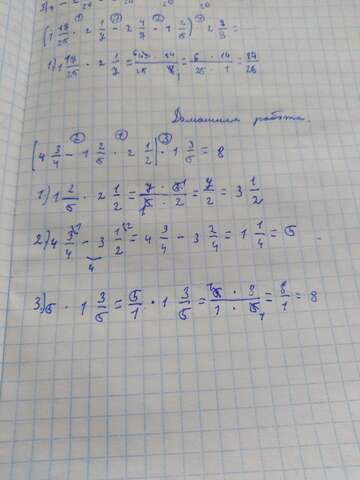 (1 17/25 · 2 1/7 - 2 1/7 · 1 2/5) · 2
1) 1 17/25 · 2 1/7 = = 6 · 14/25 · 1 = 84/25
Домашняя работа.
[4 3/4 - 1 2/5 · 2 1/2] · 1 3/5 = 8
1) 1 2/5 · 2 1/2 = 7 · 5/5 · 2 = 7/2 = 3 1/2
2) 4 3/4 - 3 1/2 = 4 3/4 - 3 2/4 = 1 1/4 = 5
4
3) 5 · 1 3/5 = 5/1 · 1 3/5 = 5 · 8/1 · 5 = 8/1 = 8